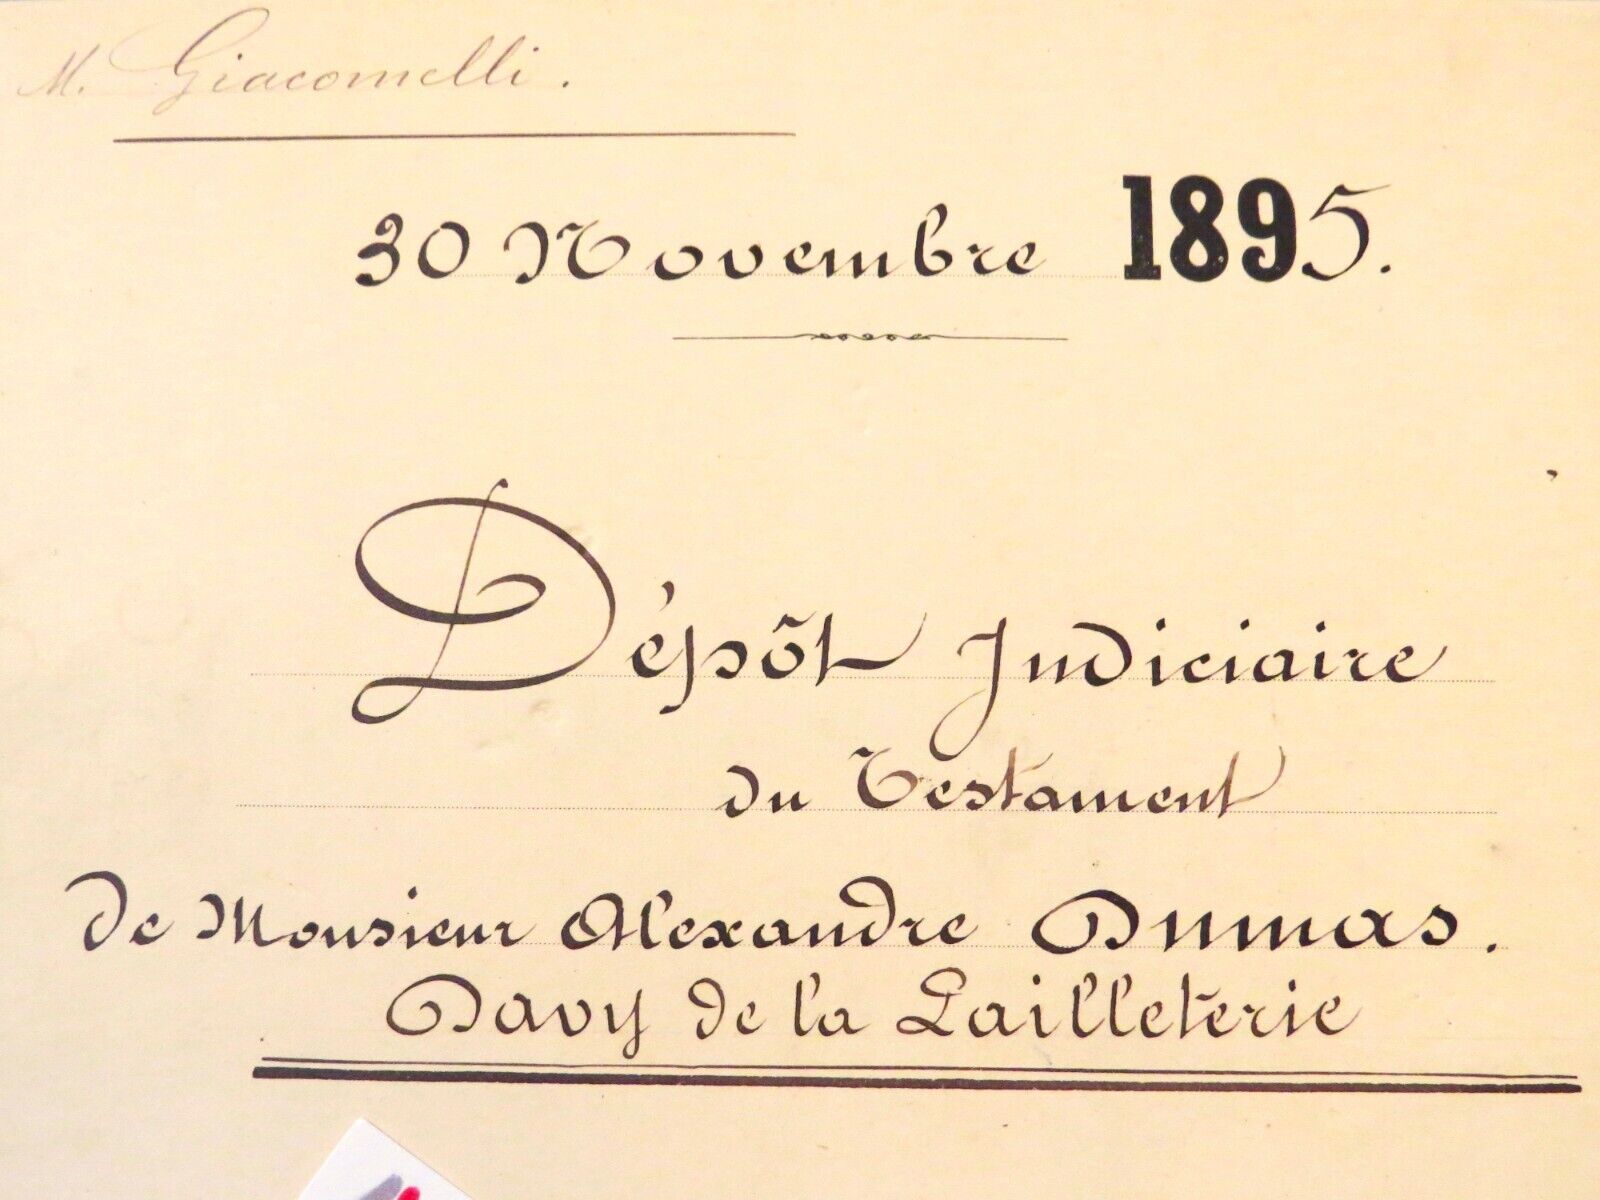 M. Giacomelli.
30 Novembre 1895.
Dépôt Judiciaire
du Testament
de Monsieur Alexandre Dumas.
Davy de la Lailleterie